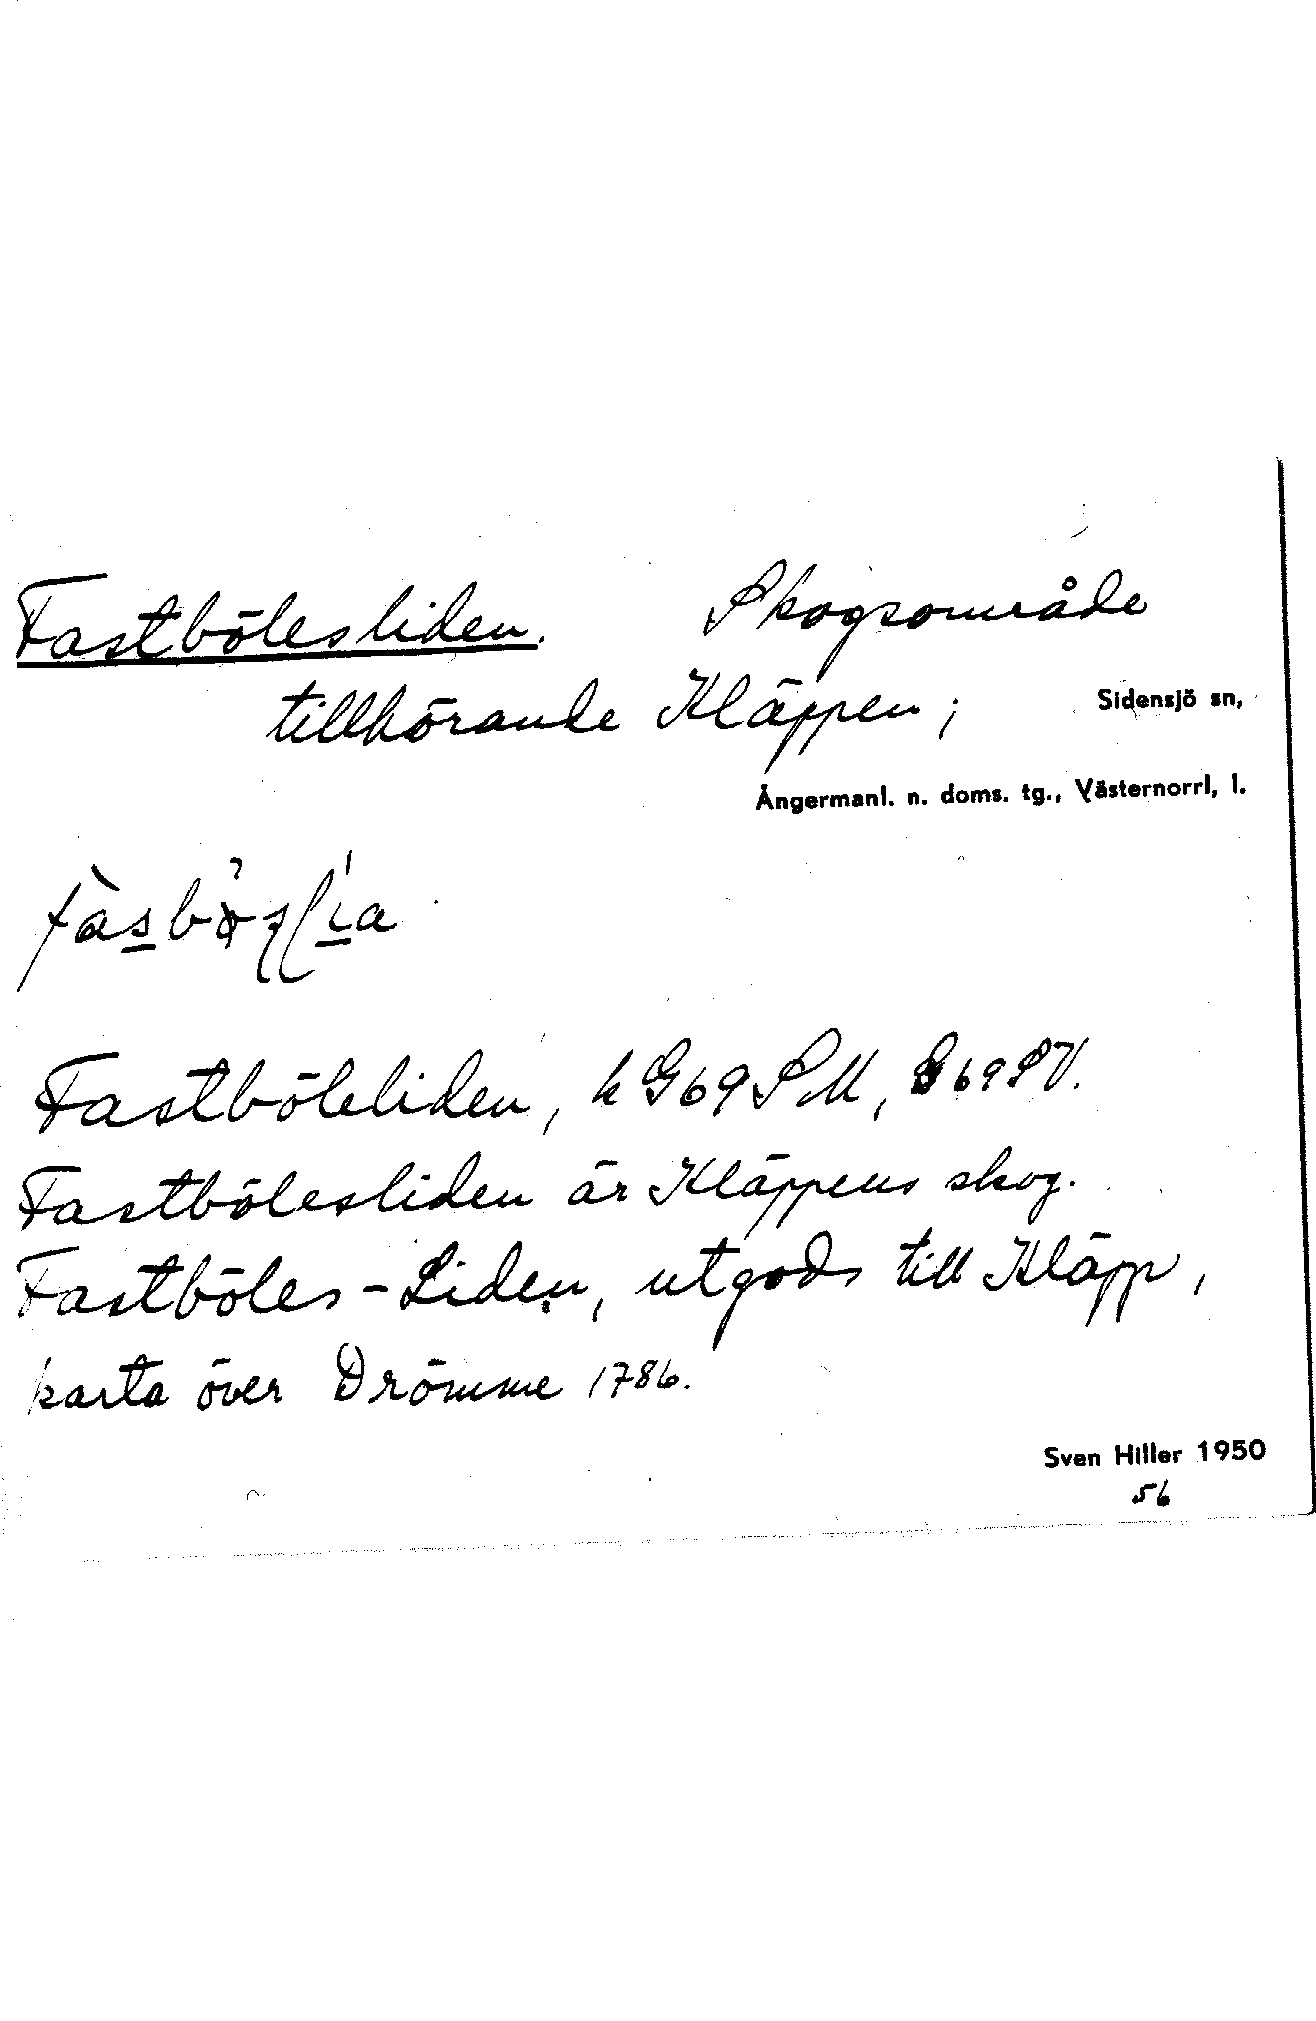 Fastbölesliden. Skogsområde
tillhörande Kläppen; Sidensjö sn,
Ångermanl. n. doms. tg., Västernorrl. l.
Fastböleliden, k G69SM, G69SV.
Fastbölesliden är Kläppens skog.
Fastböles-Liden, utgods till Kläpp,
karta över Drömme 1786.
Sven Hiller 1950
56